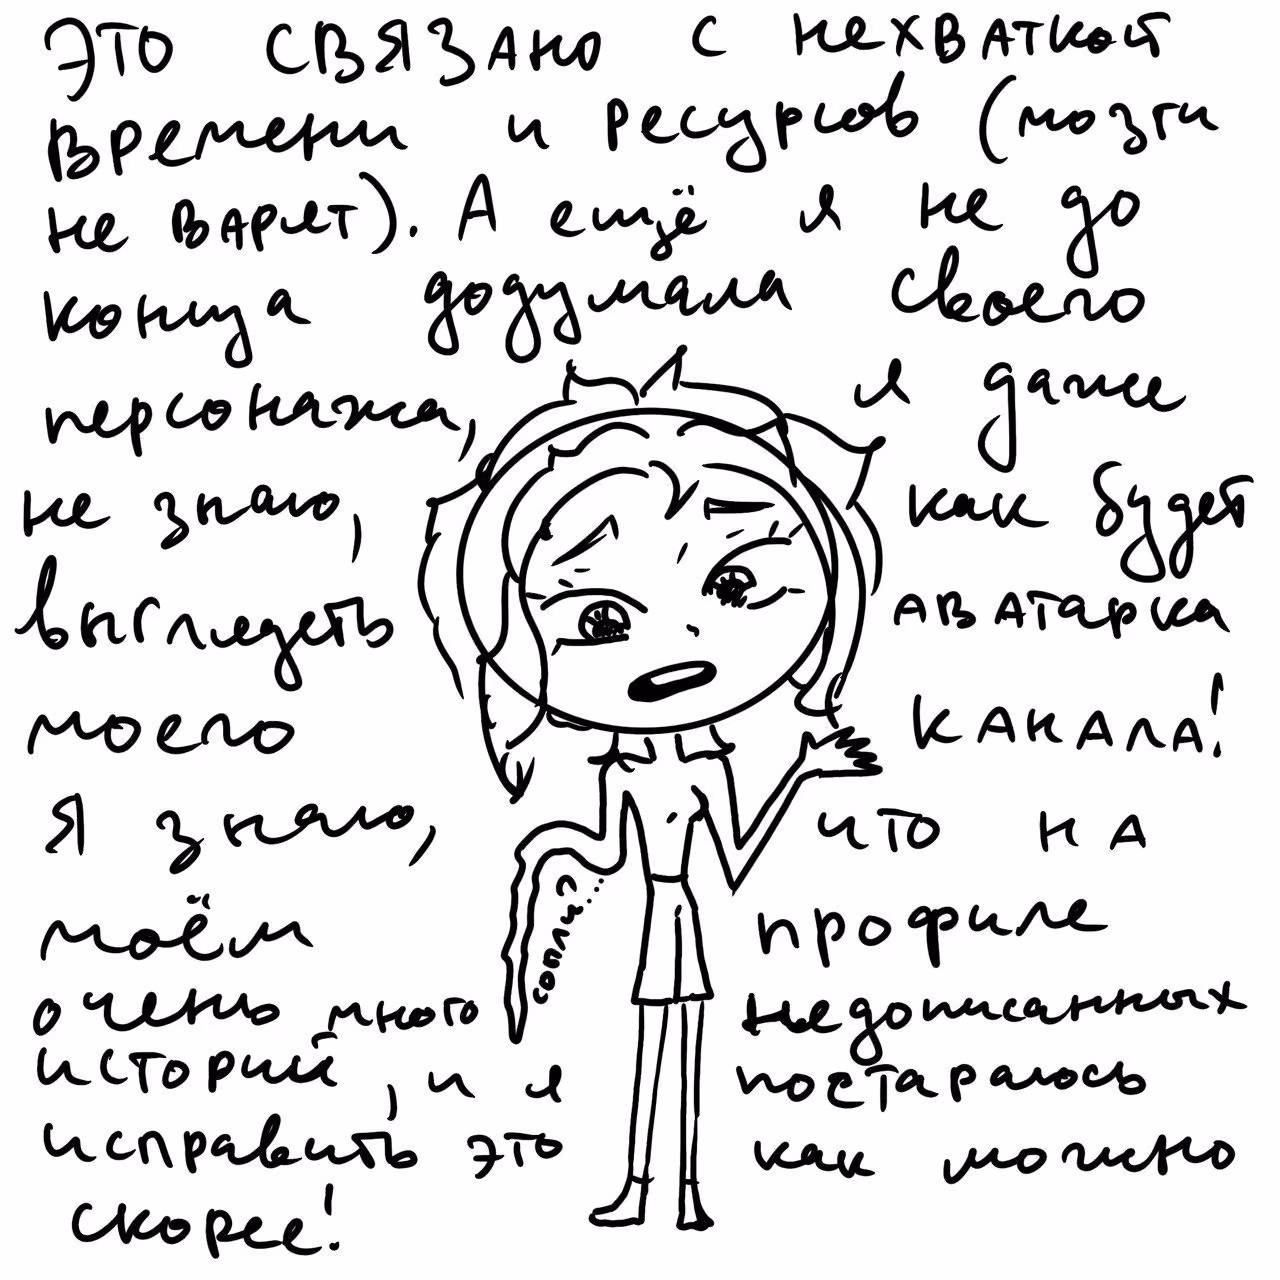 ЭТО СВЯЗАНО С НЕХВАТКОЙ
времени и ресурсов (мозги
не варят). А ещё я не до
конца додумала своего
персонажа, я даже
не знаю, как будет
выглядеть аватарка
моего канала!
Я знаю, что на
моём профиле
очень много недописанных
историй, и я постараюсь
исправить это как можно
скорее!